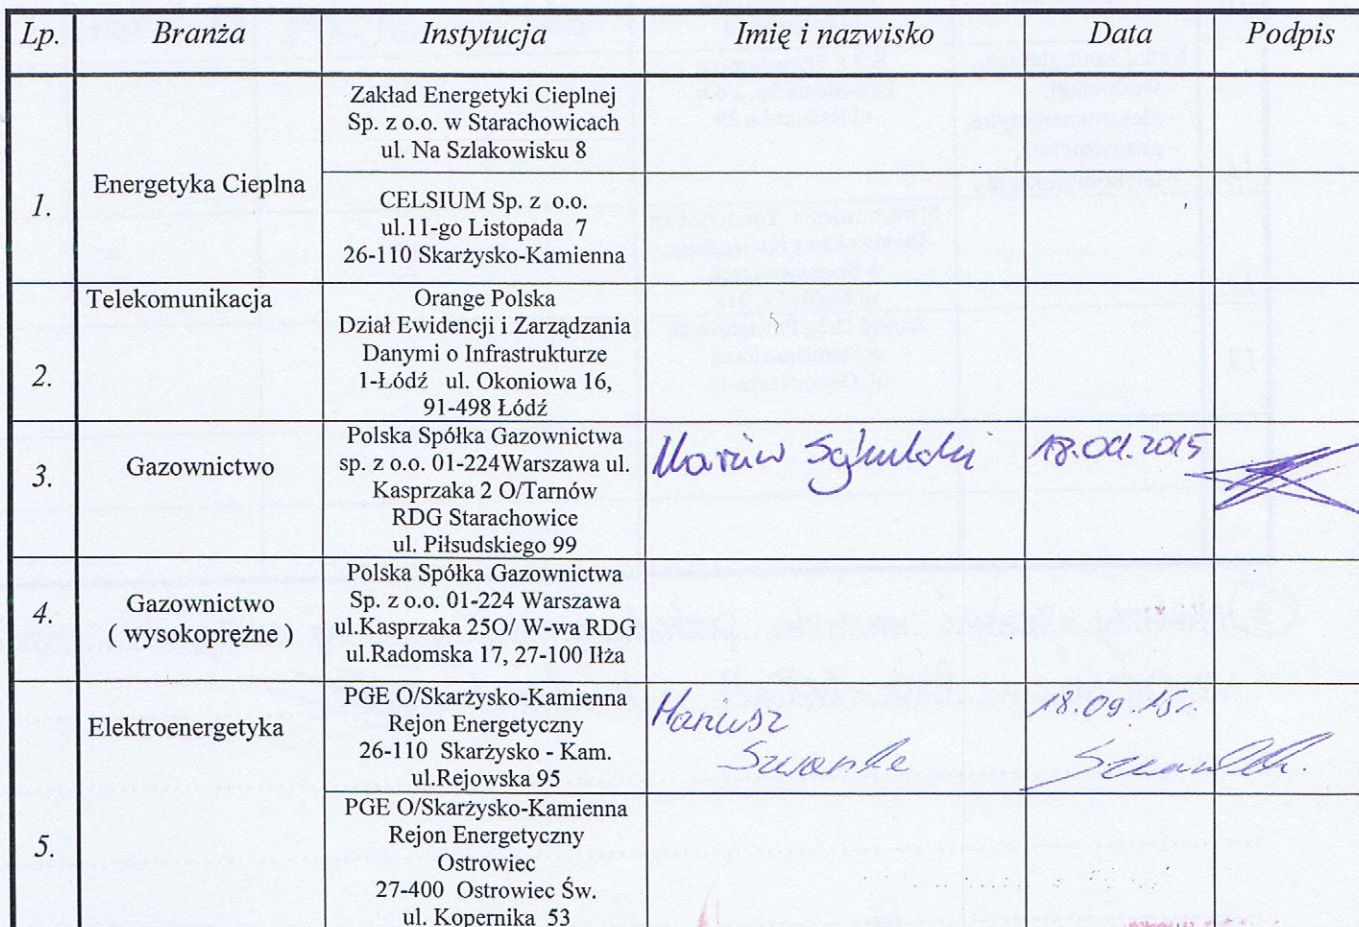 Lp. Branża Instytucja Imię i nazwisko Data Podpis
1. Energetyka Cieplna
Zakład Energetyki Cieplnej
Sp. z o.o. w Starachowicach
ul. Na Szlakowisku 8
CELSIUM Sp. z o.o.
ul.11-go Listopada 7
26-110 Skarżysko-Kamienna
2. Telekomunikacja
Orange Polska
Dział Ewidencji i Zarządzania
Danymi o Infrastrukturze
1-Łódź ul. Okoniowa 16,
91-498 Łódź
3. Gazownictwo
Polska Spółka Gazownictwa
sp. z o.o. 01-224Warszawa ul.
Kasprzaka 2 O/Tarnów
RDG Starachowice
ul. Piłsudskiego 99
Marcin 18.09.2015
4. Gazownictwo
( wysokoprężne )
Polska Spółka Gazownictwa
Sp. z o.o. 01-224 Warszawa
ul.Kasprzaka 25O/ W-wa RDG
ul.Radomska 17, 27-100 Iłża
5. Elektroenergetyka
PGE O/Skarżysko-Kamienna
Rejon Energetyczny
26-110 Skarżysko - Kam.
ul.Rejowska 95
Mariusz 18.09.15r.
PGE O/Skarżysko-Kamienna
Rejon Energetyczny
Ostrowiec
27-400 Ostrowiec Św.
ul. Kopernika 53